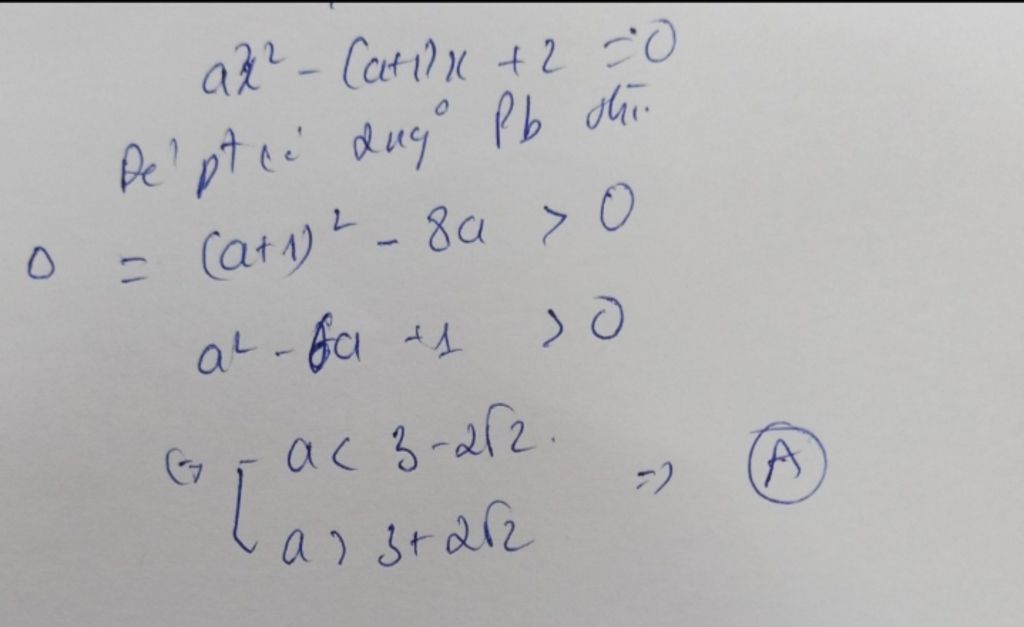 ax² - (a+1)x + 2 = 0
Để pt có 2 ng° Pb thì.
Δ = (a+1)² - 8a > 0
a² - 6a + 1 > 0
⇔ [ a < 3 - 2√2. ⇒ A
a > 3 + 2√2